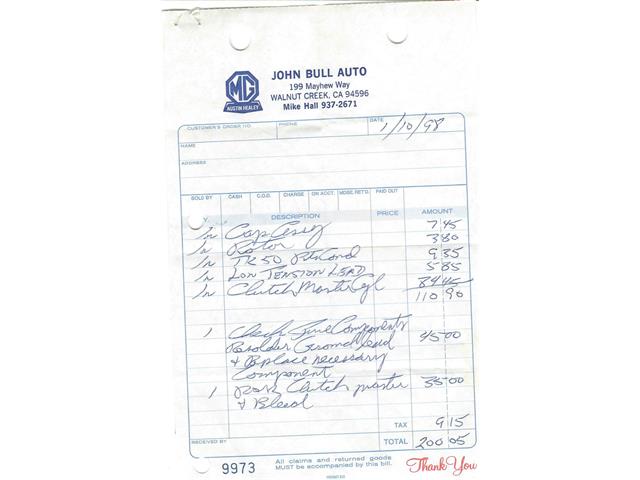 MG
AUSTIN HEALEY
JOHN BULL AUTO
199 Mayhew Way
WALNUT CREEK, CA 94596
Mike Hall 937-2671
CUSTOMER'S ORDER NO. PHONE DATE 1/10/98
NAME
ADDRESS
SOLD BY CASH C.O.D. CHARGE ON ACCT. MDSE. RET'D. PAID OUT
Y. DESCRIPTION PRICE AMOUNT
Cap Assy 7 45
Rotor 3 80
TR50 Pts Cond 9 35
Low TENSION LEAD 5 85
Clutch Master Cyl 84 45
110 90
1 Check Components 45 00
Resolder Ground lead
& Replace necessary
Component
1 Clutch master 35 00
& Bleed
TAX 9 15
RECEIVED BY TOTAL 200 05
9973 All claims and returned goods
MUST be accompanied by this bill. Thank You